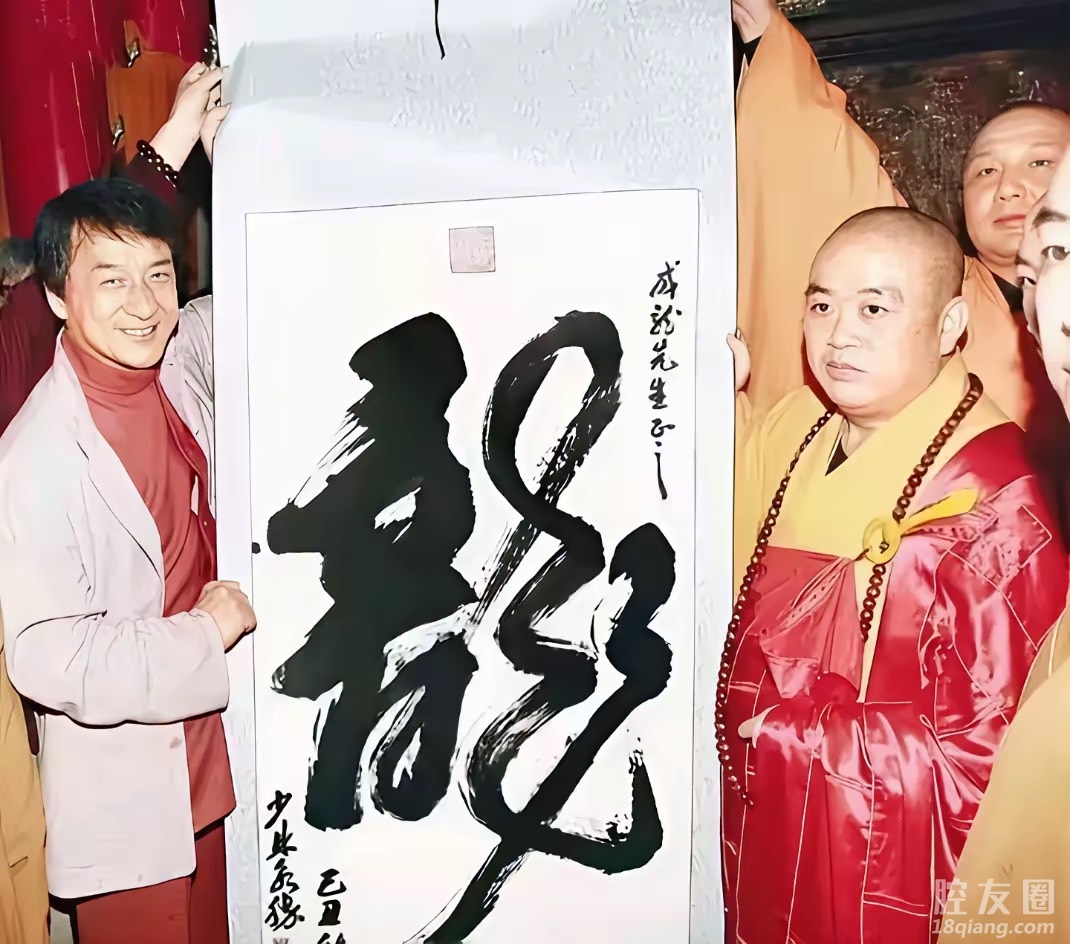 成龙先生正之
龍
少林永信
己丑秋
腔友圈
18qiang.com